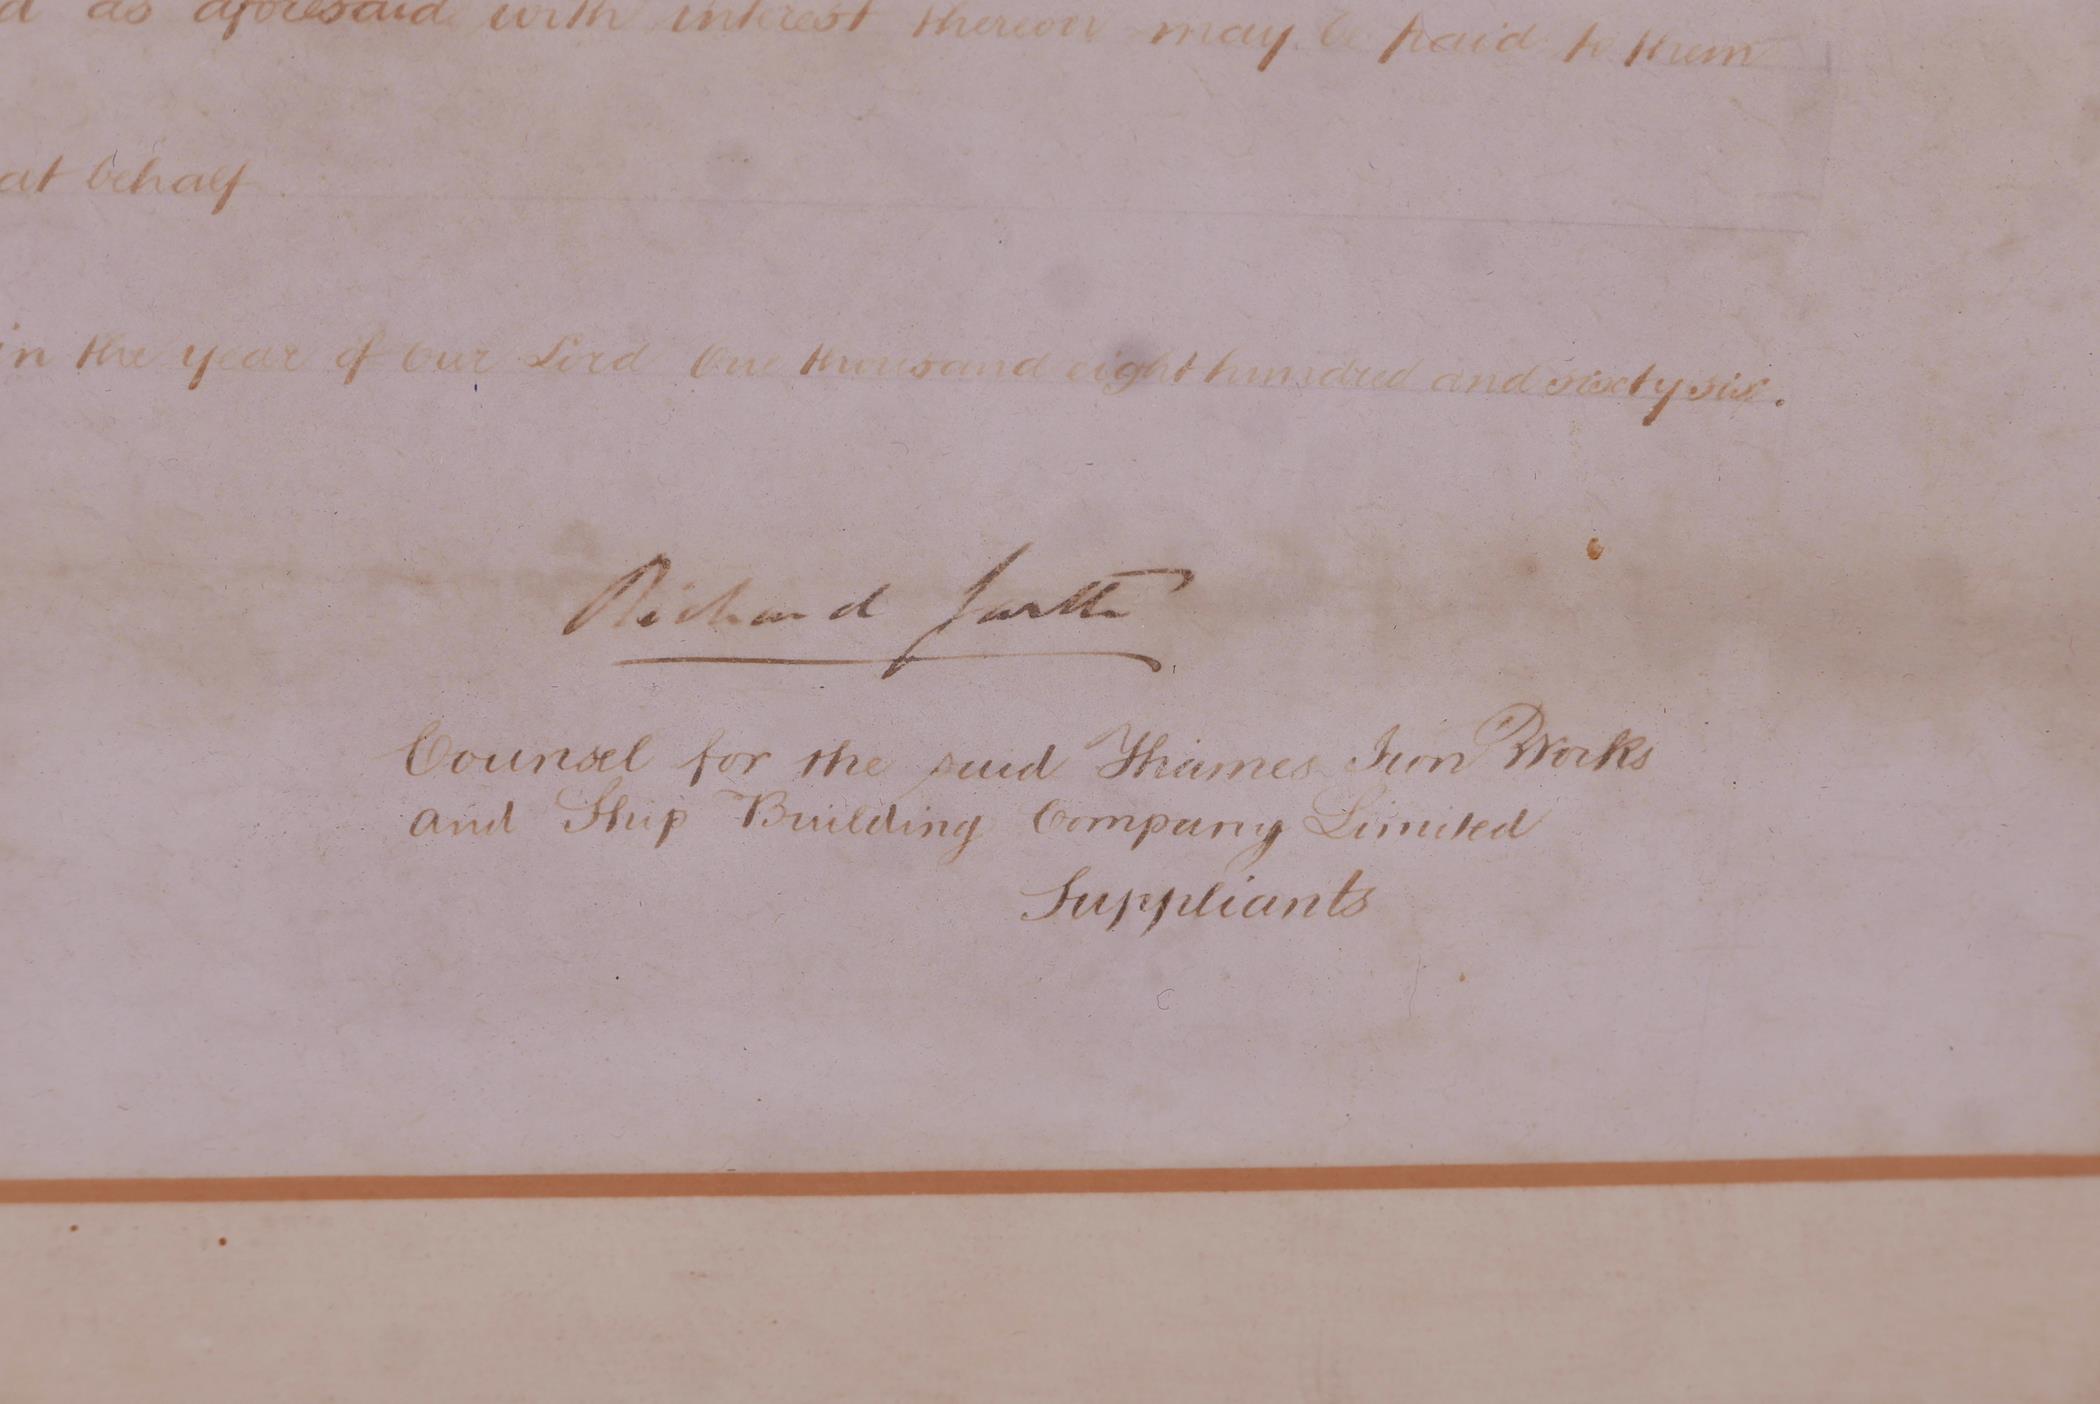 as aforesaid with interest thereon may be paid to them
at behalf
in the year of Our Lord One thousand eight hundred and sixty six.
Richard Garth
Counsel for the said Thames Iron Works
and Ship Building Company Limited
Suppliants